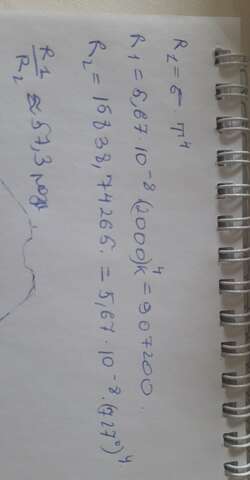 R₁ = σ T⁴
R₁ = 5,67 · 10⁻⁸ (2000)⁴K = 907200 ..
R₂ = 15838,74265. = 5,67 · 10⁻⁸ · (727°)⁴
R₁/R₂ ≈ 57,3